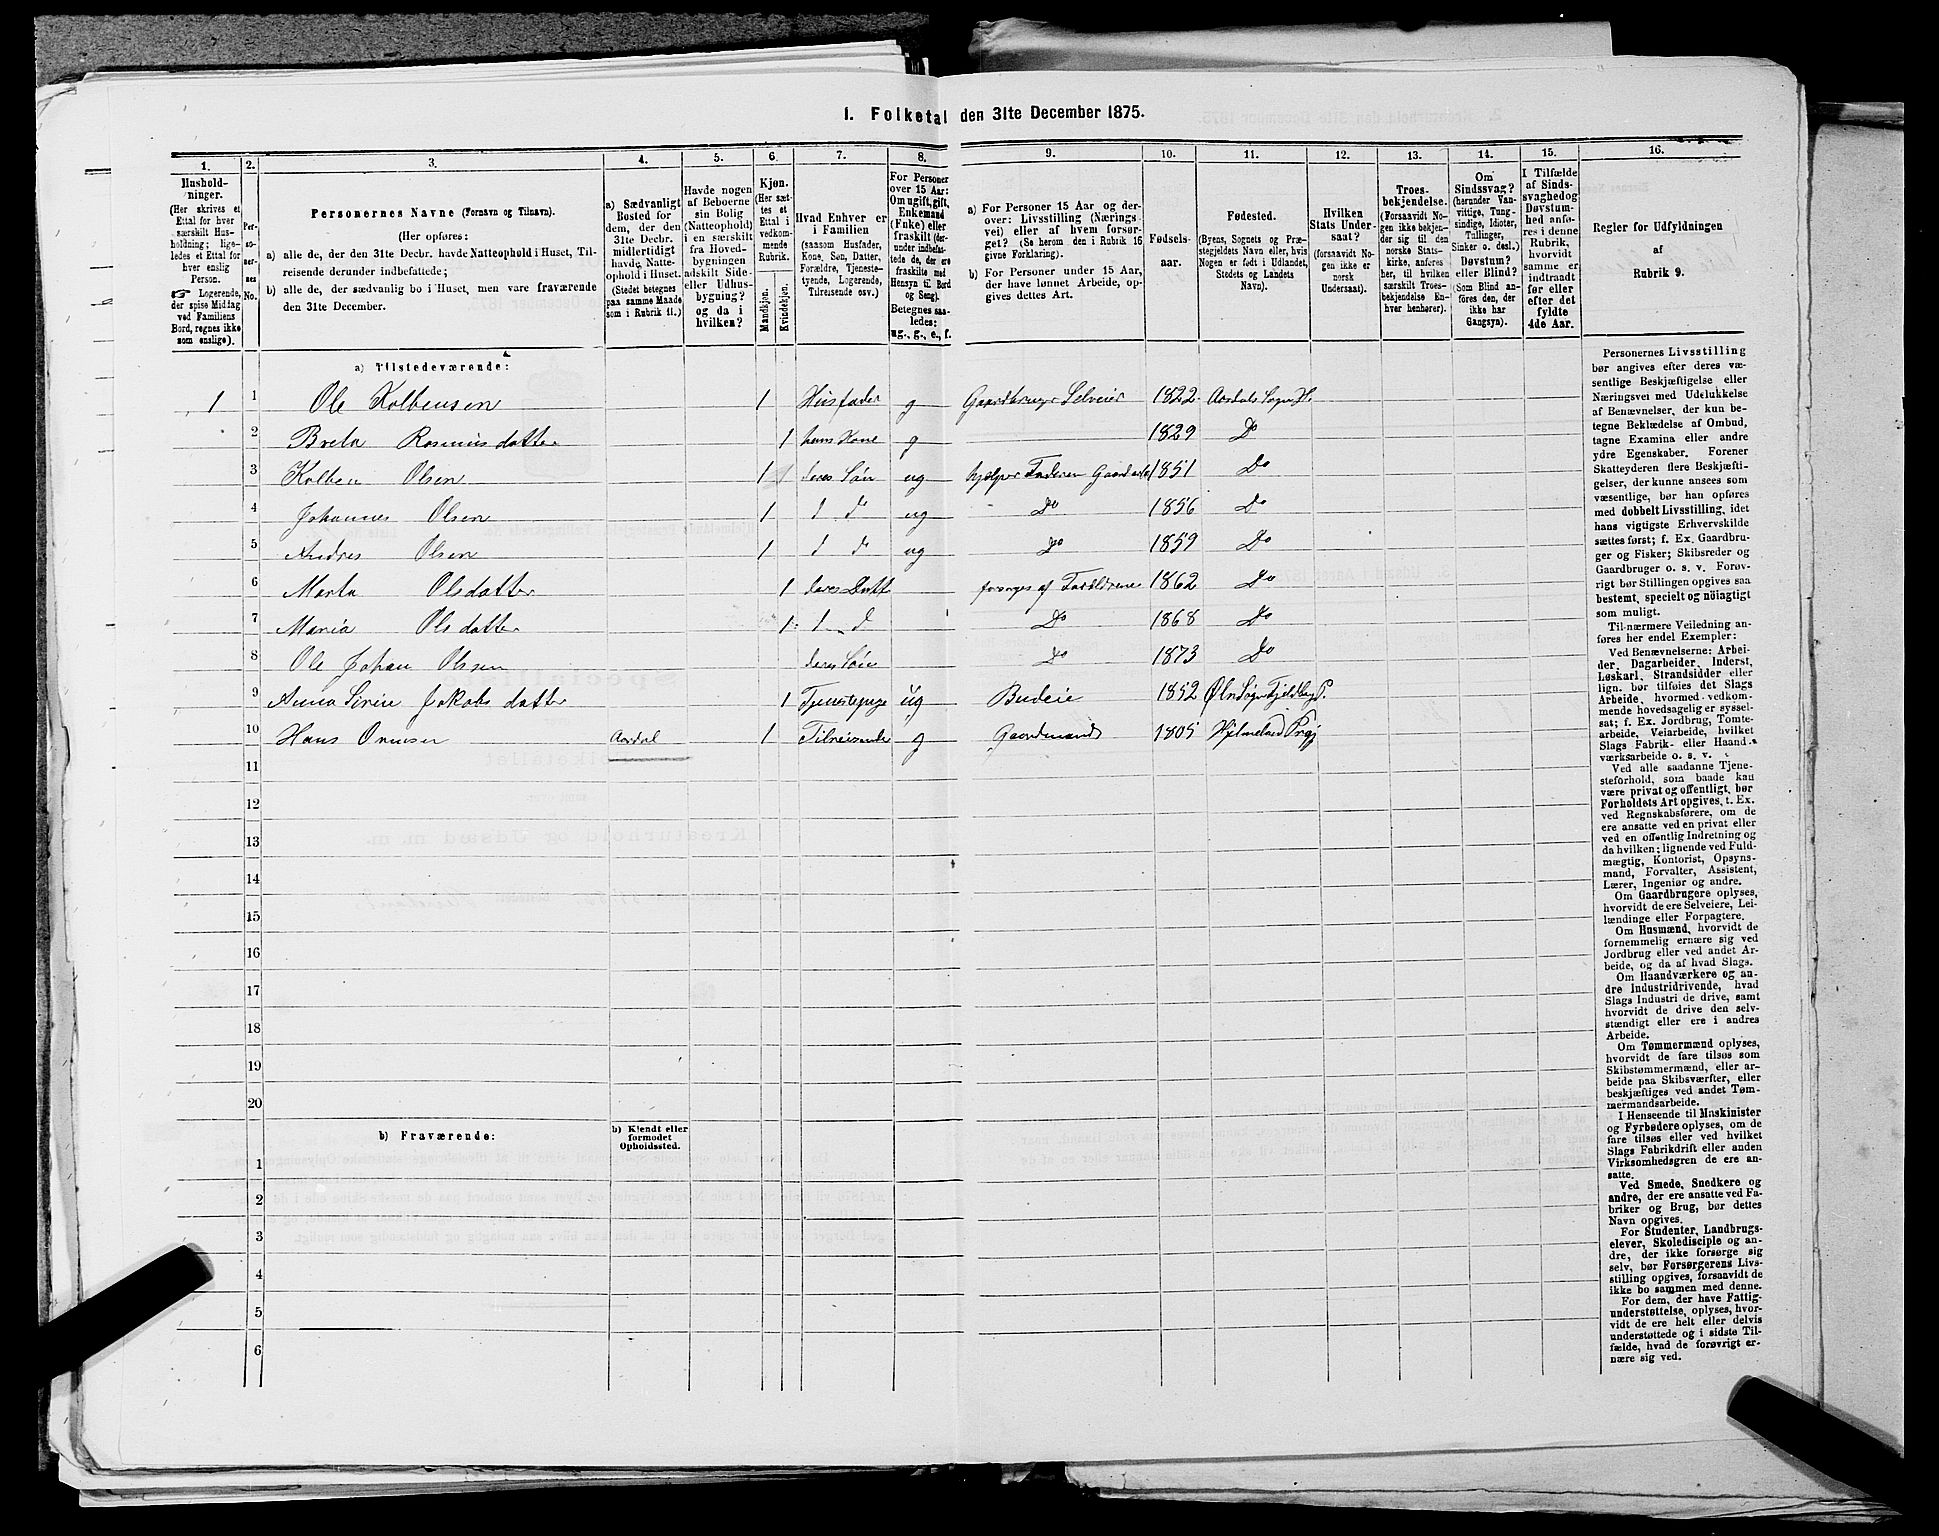 1. Folketal den 31te December 1875.
1. 2. 3. 4. 5. 6. 7. 8. 9. 10. 11. 12. 13. 14. 15. 16.
Hushold-
ninger.
(Her skrives et
Ettal for hver
særskilt Hus-
holdning; lige-
ledes et Ettal for
hver enslig
Person.
Logerende,
der spise Middag
ved Familiens
Bord, regnes ikke
som enslige).
Per-
so-
ner-
nes
No.
Personernes Navne (Fornavn og Tilnavn).
(Her opføres:
a) alle de, der den 31te Decbr. havde Natteophold i Huset, Til-
reisende derunder indbefattede;
b) alle de, der sædvanlig bo i Huset, men vare fraværende
den 31te December.
a) Sædvanligt
Bosted for
dem, der den
31te Decbr.
midlertidigt
havde Natte-
ophold i Huset.
(Stedet betegnes
paa samme Maade
som i Rubrik 11.)
Havde nogen
af Beboerne
sin Bolig
(Natteophold)
i en særskilt
fra Hoved-
bygningen
adskilt Side-
eller Udhus-
bygning?
og da i
hvilken?
Kjøn.
(Her sæt-
tes et
Ettal i
vedkom-
mende
Rubrik.
Mandkjøn.
Kvindekjøn.
Hvad Enhver er
i Familien
(saasom Husfader,
Kone, Søn, Datter,
Forældre, Tjeneste-
tyende, Logerende,
Tilreisende osv.)
For Personer
over 15 Aar:
Om ugift, gift,
Enkemand
(Enke) eller
fraskilt (der-
under indbefat-
tede de, der ere
fraskilte med
Hensyn til Bord
og Seng).
Betegnes saa-
ledes:
ug., g., e., f.
a) For Personer 15 Aar og der-
over: Livsstilling (Nærings-
vei) eller af hvem forsør-
get? (Se herom den i Rubrik 16
givne Forklaring).
b) For Personer under 15 Aar,
der have lønnet Arbeide, op-
gives dettes Art.
Fødsels-
aar.
Fødested.
(Byens, Sognets og Præ-
stegjeldets Navn eller, hvis
Nogen er født i Udlandet,
Stedets og Landets
Navn).
Hvilken
Stats Under-
saat?
(forsaavidt No-
gen ikke er
norsk
Undersaat).
Troes-
bekjendelse.
(Forsaavidt No-
gen ikke bekjen-
der sig til den
norske Stats-
kirke, anføres
her, til hvilken
særskilt Troes-
bekjendelse En-
hver henhører).
Om
Sindssvag?
(herunder Van-
vittige, Tung-
sindige, Idioter,
Tullinger,
Sinker o. desl.)
Døvstum?
eller Blind?
(Som Blind an-
føres den, der
ikke har
Gangsyn).
I Tilfælde
af Sinds-
svaghed og
Døvstum-
hed anfø-
res i denne
Rubrik,
hvorvidt
samme er
indtraadt
før eller
efter det
fyldte
4de Aar.
Regler for Udfyldningen
af
Rubrik 9.
a) Tilstedeværende:
1 1 Ole Kolbensen 1 Husfader g Gaardbruger Selveier 1822 Aardals Sogn H.
2 Breta Rasmusdatter 1 hans Kone g 1829 Do
3 Kolben Olsen 1 deres Søn ug hjælper Faderen Gaardarb 1851 Do
4 Johannes Olsen 1 d d ug Do 1856 Do
5 Andres Olsen 1 d d ug Do 1859 Do
6 Marta Olsdatter 1 deres Datt forsørges af Forældrene 1862 Do
7 Maria Olsdatter 1 d d Do 1868 Do
8 Ole Johan Olsen deres Søn Do 1873 Do
9 Anna Sirine Jakobsdatter 1 Tjenestepige ug Budeie 1852 Øln Sogn Fjeldberg P.
10 Hans Ormsen Aardal 1 Tilreisende g Gaardmand 1805 Hjelmeland Prgj
11
12
13
14
15
16
17
18
19
20
b) Fraværende:
b) Kjendt eller
formodet
Opholdssted.
1
2
3
4
5
6
Personernes Livsstilling
bør angives efter deres væ-
sentlige Beskjæftigelse eller
Næringsvei med Udelukkelse
af Benævnelser, der kun be-
tegne Beklædelse af Ombud,
tagne Examina eller andre
ydre Egenskaber. Forener
Skatteyderen flere Beskjæfti-
gelser, der kunne ansees som
væsentlige, bør han opføres
med dobbelt Livsstilling, idet
hans vigtigste Erhvervskilde
sættes først; f. Ex. Gaardbru-
ger og Fisker; Skibsreder og
Gaardbruger o. s. v. Forøv-
rigt bør Stillingen opgives saa
bestemt, specielt og nöiagtigt
som muligt.
Til nærmere Veiledning an-
føres her endel Exempler:
Ved Benævnelserne: Arbei-
der, Dagarbeider, Inderst,
Løskarl, Strandsidder eller
lign. bør tilføies det Slags
Arbeide, hvormed vedkom-
mende hovedsagelig er syssel-
sat; f. Ex. Jordbrug, Tomte-
arbeide, Veiarbeide, hvilket
Slags Fabrik- eller Haand-
værksarbeide o. s. v.
Ved alle saadanne Tjene-
steforhold, som baade kan
være privat og offentligt, bør
Forholdets Art opgives, t. Ex.
ved Regnskabsførere, om de
ere ansatte ved en privat eller
ved en offentlig Indretning og
da hvilken; lignende ved Fuld-
mægtig, Kontorist, Opsyns-
mand, Forvalter, Assistent,
Lærer, Ingeniør og andre.
Om Gaardbrugere oplyses,
hvorvidt de ere Selveiere, Lei-
lændinge eller Forpagtere.
Om Husmænd, hvorvidt de
fornemmelig ernære sig ved
Jordbrug eller ved andet Ar-
beide, og da af hvad Slags.
Om Haandværkere og an-
dre Industridrivende, hvad
Slags Industri de drive, samt
hvorvidt de drive den selv-
stændigt eller ere i andres
Arbeide.
Om Tømmermænd oplyses,
hvorvidt de fare tilsøs som
Skibstømmermænd, eller ar-
beide paa Skibsværfter, eller
beskjæftiges ved andet Tøm-
mermandsarbeide.
I Henseende til Maskinister
og Fyrbødere oplyses, om de
fare tilsøs eller ved hvilket
Slags Fabrikdrift eller anden
Virksomhedsgren de ere an-
satte.
Ved Smede, Snedkere og
andre, der ere ansatte ved Fa-
briker og Brug, bør dettes
Navn opgives.
For Studenter, Landbrugs-
elever, Skoledisciple og an-
dre, der ikke forsørge sig
selv, bør Forsørgerens Livs-
stilling opgives, forsaavidt de
ikke bo sammen med denne.
For dem, der have Fattig-
understøttelse, oplyses, hvor-
vidt de ere helt eller delvis
understøttede og i sidste Til-
fælde, hvad de forøvrigt er-
nære sig ved.